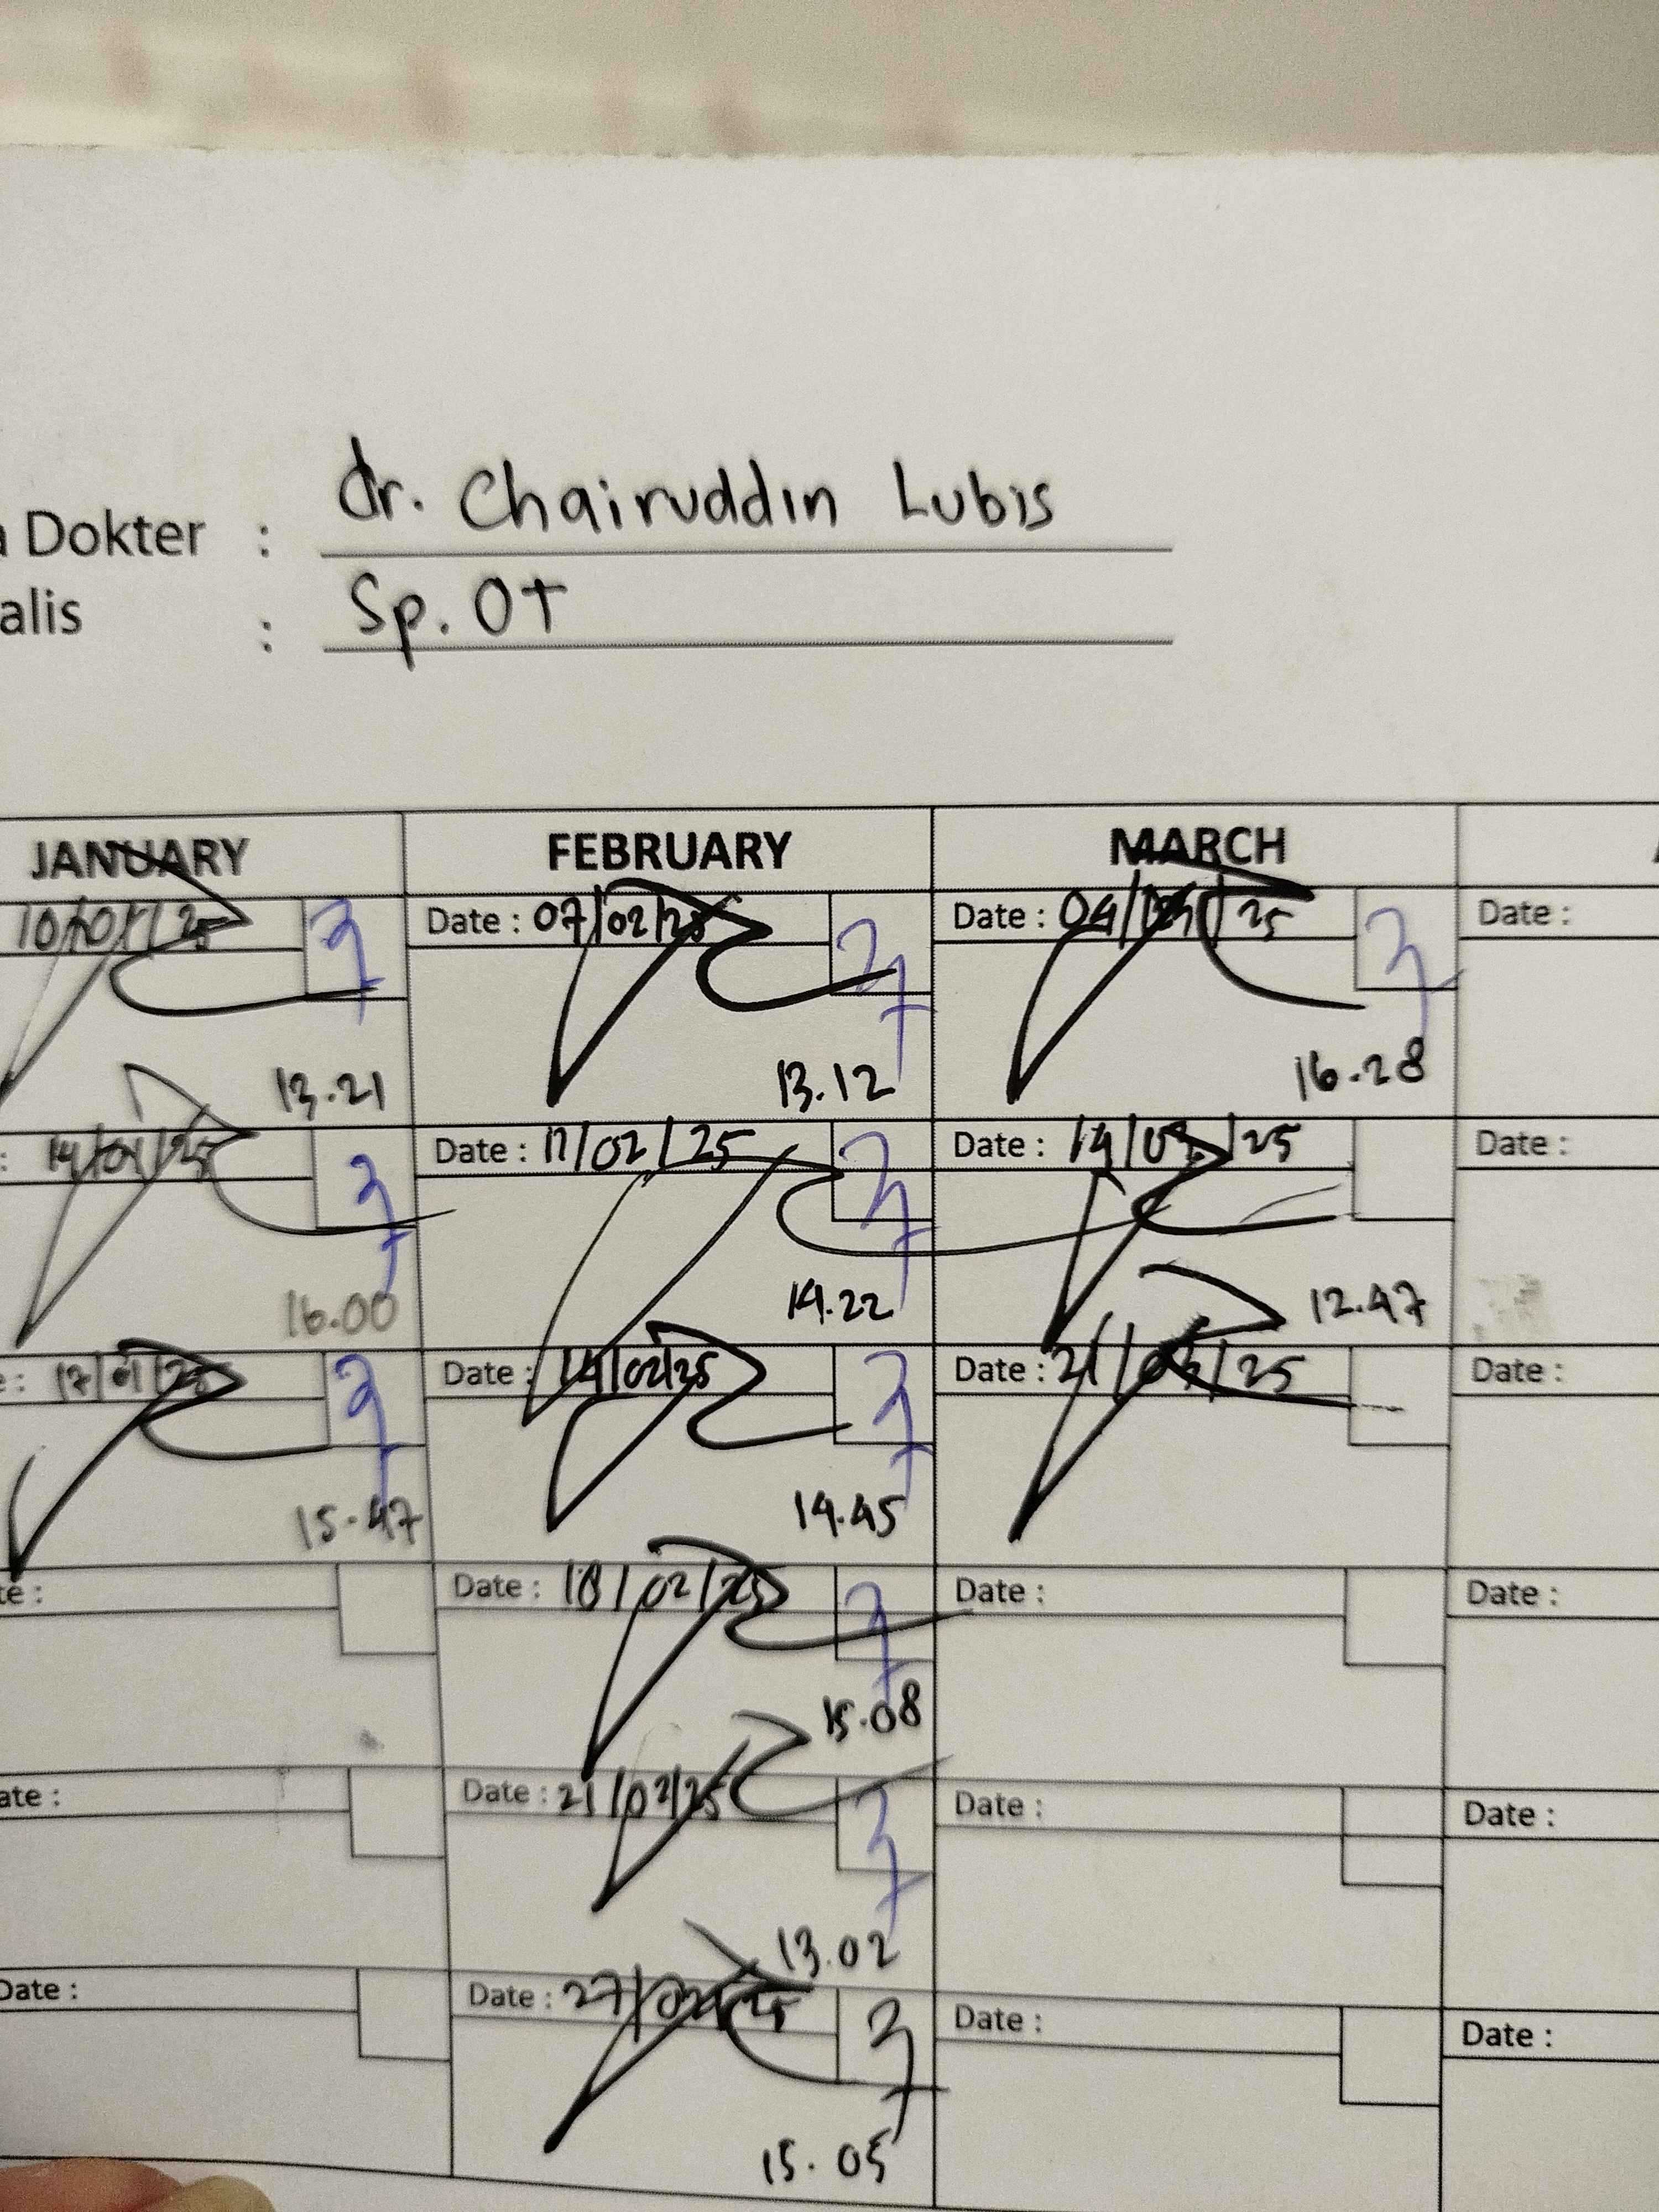 Dokter : dr. Chairuddin Lubis
alis : Sp. OT
JANUARY FEBRUARY MARCH
10/01/25 Date : 07/02/25 Date : 04/03/25 Date :
13.21 13.12 16.28
: 14/01/25 Date : 11/02/25 Date : 14/03/25 Date :
16.00 14.22 12.47
e : 17/01/25 Date : 14/02/25 Date : 21/03/25 Date :
15.47 14.45
te : Date : 18/02/25 Date : Date :
15.08
ate : Date : 21/02/25 Date : Date :
13.02
Date : Date : 27/02/25 Date : Date :
15.05